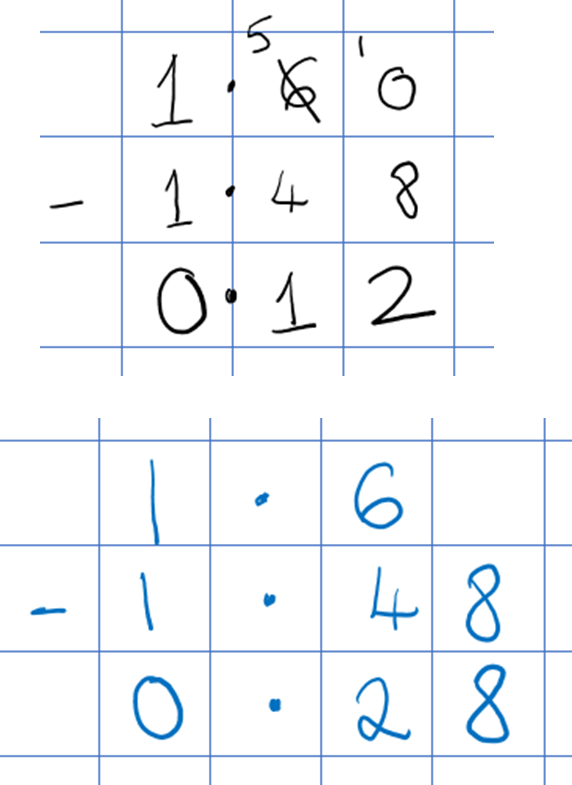 5 1
1 . 6 0
- 1 . 4 8
0 . 1 2
1 . 6
- 1 . 4 8
0 . 2 8